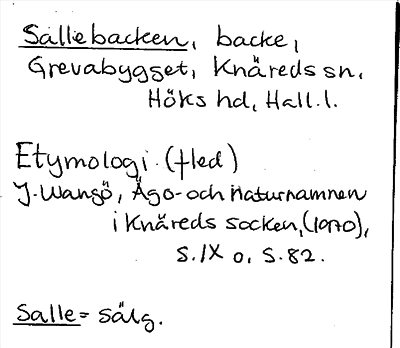 Sallebacken, backe,
Grevabygget, Knäreds sn,
Höks hd, Hall. l.
Etymologi. (fled)
J. Wangö, Ägo- och naturnamnen
i Knäreds socken, (1970),
s. IX o. s. 82.
Salle = sälg.